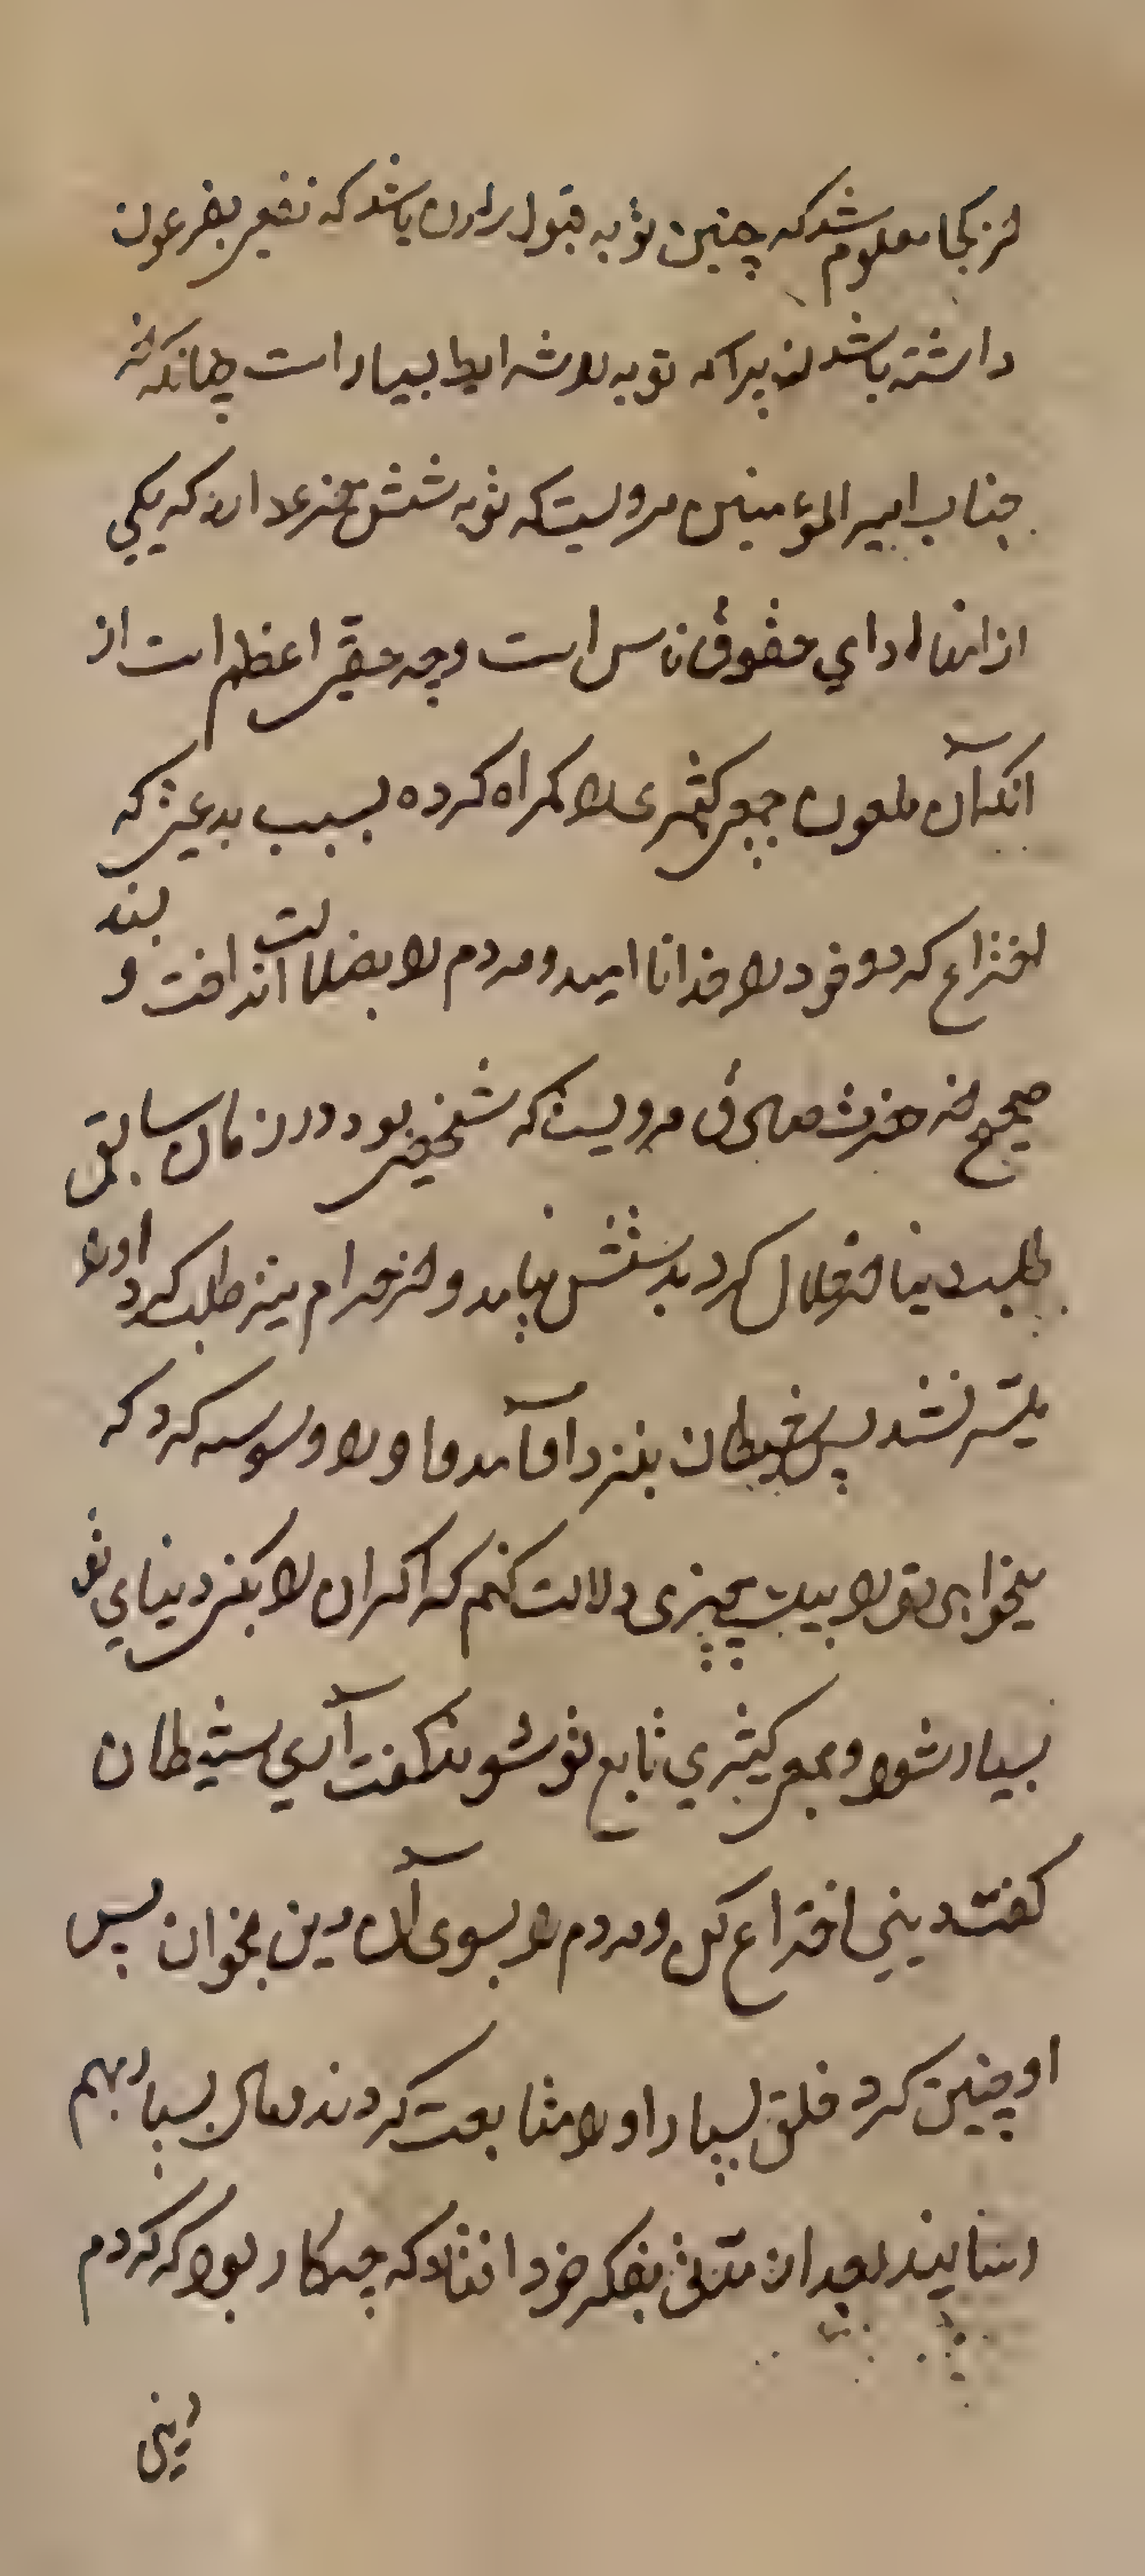 از کجا معلوم شد که چنین توبه قبول باشد که نفعی بفرعون
داشته باشد توبه را شرایط بسیار است چنانکه از
جناب امیر المؤمنین مرویست که توبه شش دارد که یکی
از انها ادای حقوق ناس است و چه حقی اعظم است از
انکه آن ملعون جمعی کثیری را کمراه کرده بسبب بدعتی که
اختراع کرد و خود را خدا نامید و مردم را بضلالت انداخت و بسند
صحیح از حضرت صادق مرویست که شخصی بود در زمان سابق
طلب دنیا از حلال کرد بدستش نیامد و از حرام نیز طلب کرد او را
میسّر نشد پس شیطان بنزد او آمد و او را وسوسه کرد که
میخواهی تو را بیک چیزی دلالت کنم که اکر آن را بکنی دنیای تو
بسیار شود و جمع کثیری تابع تو شوند کفت آری شیطان
کفت دینی اختراع کن و مردم را بسوی آن دین بخوان پس
او چنین کرد خلق بسیار او را متابعت کردند و مال بسیار بهم
رسانیدند بعد از مدتی بفکر خود افتاد که چه کار بود که کردم
دینی